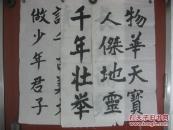 物華天寶
人傑地靈
千年壯举
做少年君子